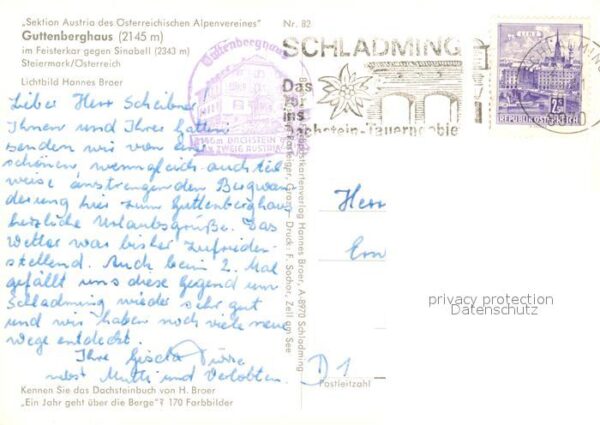 „Sektion Austria des Österreichischen Alpenvereines"
Guttenberghaus (2145 m)
im Feisterkar gegen Sinabell (2343 m)
Steiermark/Österreich
Lichtbild Hannes Broer
Lieber Herr Scheibner!
Ihnen und Ihrer Gattin
senden wir von einer
schönen, wenngleich auch teil
weise anstrengenden Bergwan
derung hier zum Guttenberghaus
herzliche Urlaubsgrüße. Das
Wetter war bisher zufrieden-
stellend. Auch beim 2. Mal
gefällt uns diese Gegend um
Schladming wieder sehr gut
und wir haben noch viele neue
Wege entdeckt.
Ihre Gisela
nebst Mutti und Verlobten.
Kennen Sie das Dachsteinbuch von H. Broer
„Ein Jahr geht über die Berge"? 170 Farbbilder
Nr. 82
Guttenberghaus
2146m DACHSTEIN
ZWEIG AUSTRIA
Postkartenverlag Hannes Broer, A-8970 Schladming
Druck: F. Sochor, Zell am See
SCHLADMING
Das
Tor
ins
Dachstein-Tauerngebiet
SCHLADMING
LINZ
2 S
REPUBLIK ÖSTERREICH
Herr
D 1
Postleitzahl
privacy protection
Datenschutz